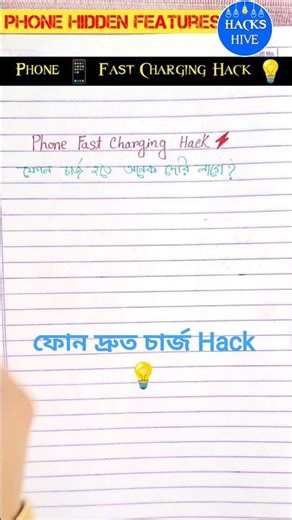 PHONE HIDDEN FEATURES
HACKS
HIVE
PHONE 📱 FAST CHARGING HACK 💡
Phone Fast Charging Hack ⚡
ফোন চার্জ হতে অনেক দেরি লাগে?
ফোন দ্রুত চার্জ Hack
💡